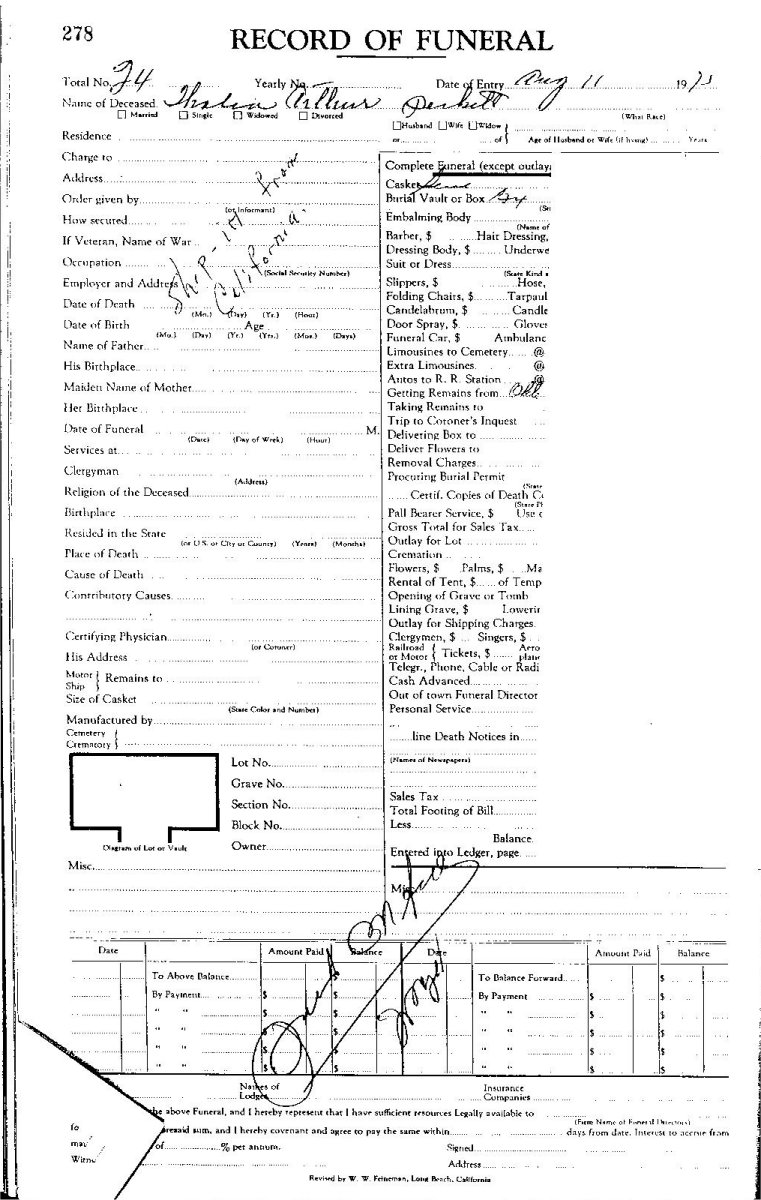 278
RECORD OF FUNERAL
Total No. 24 Yearly No. Date of Entry Aug 11 19
Name of Deceased Arthur
Married Single Widowed Divorced
(What Race)
Husband Wife Widow
or of Age of Husband or Wife (if living) Years
Residence
Charge to
Address
Order given by
(or Informant)
How secured
If Veteran, Name of War
Occupation
(Social Security Number)
Employer and Address
Ship-in from California.
Date of Death
(Mo.) (Day) (Yr.) (Hour)
Date of Birth Age
(Mo.) (Day) (Yr.) (Yrs.) (Mos.) (Days)
Name of Father
His Birthplace
Maiden Name of Mother
Her Birthplace
Date of Funeral M.
(Date) (Day of Week) (Hour)
Services at
Clergyman
(Address)
Religion of the Deceased
Birthplace
Resided in the State
(or U.S. or City or County) (Years) (Months)
Place of Death
Cause of Death
Contributory Causes
Certifying Physician
(or Coroner)
His Address
Motor Ship } Remains to
Size of Casket
(State Color and Number)
Manufactured by
Cemetery
Crematory
Lot No.
Grave No.
Section No.
Block No.
Owner
Diagram of Lot or Vault
Misc.
Complete Funeral (except outlay
Casket
Burial Vault or Box
Embalming Body
(Name of
Barber, $ Hair Dressing,
Dressing Body, $ Underwe
Suit or Dress
(State Kind a
Slippers, $ Hose,
Folding Chairs, $ Tarpaul
Candelabrum, $ Candle
Door Spray, $ Glover
Funeral Car, $ Ambulanc
Limousines to Cemetery @
Extra Limousines @
Autos to R. R. Station @
Getting Remains from
Taking Remains to
Trip to Coroner's Inquest
Delivering Box to
Deliver Flowers to
Removal Charges
Procuring Burial Permit
(State
Certif. Copies of Death C
(State Pl
Pall Bearer Service, $ Use c
Gross Total for Sales Tax
Outlay for Lot
Cremation
Flowers, $ Palms, $ Ma
Rental of Tent, $ of Temp
Opening of Grave or Tomb
Lining Grave, $ Lowerin
Outlay for Shipping Charges
Clergymen, $ Singers, $
Railroad or Motor { Tickets, $ Aero plane
Telegr., Phone, Cable or Radi
Cash Advanced
Out of town Funeral Director
Personal Service
line Death Notices in
(Names of Newspapers)
Sales Tax
Total Footing of Bill
Less
Balance
Entered into Ledger, page
Misc.
Date Amount Paid Balance Date Amount Paid Balance
To Above Balance $ To Balance Forward $
By Payment $ $ By Payment $ $
" " $ $ " " $ $
" " $ $ " " $ $
" " $ $ " " $ $
" " $ $ " " $ $
Names of Lodges Insurance Companies
he above Funeral, and I hereby represent that I have sufficient resources Legally available to
(Firm Name of Funeral Directors)
fo
presaid sum, and I hereby covenant and agree to pay the same within days from date. Interest to accrue from
may of % per annum. Signed
Witne
Address
Revised by W. W. Feineman, Long Beach, California